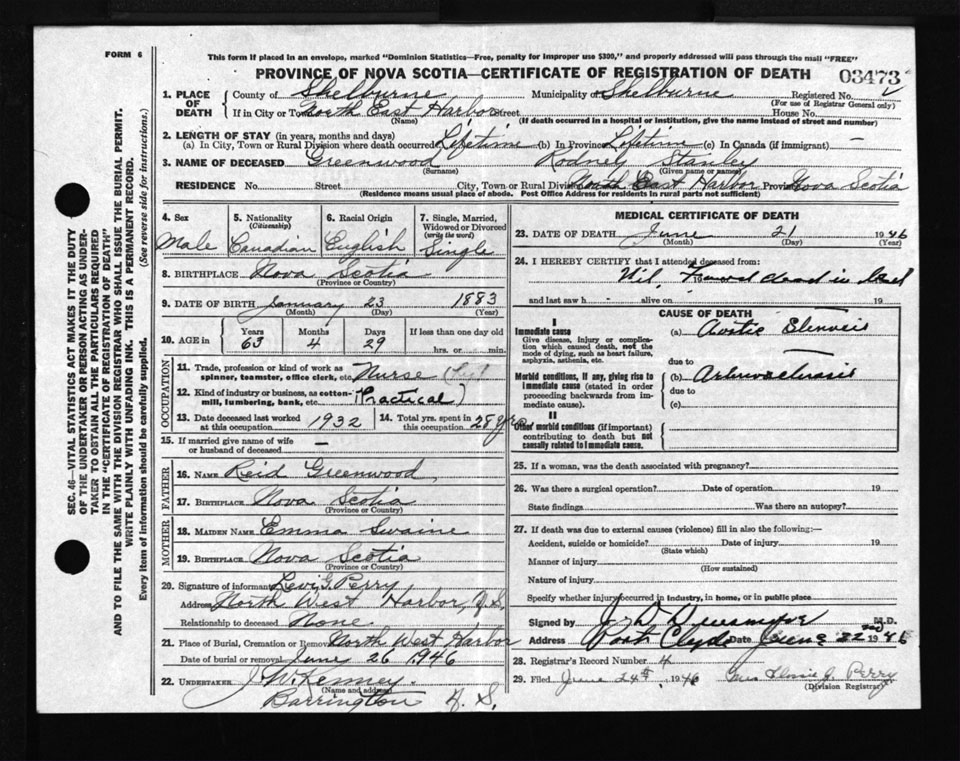 FORM 6
This form if placed in an envelope, marked "Dominion Statistics—Free, penalty for improper use $300," and properly addressed will pass through the mail "FREE"
PROVINCE OF NOVA SCOTIA—CERTIFICATE OF REGISTRATION OF DEATH
03473
1. PLACE OF DEATH County of Shelburne Municipality of Shelburne Registered No.
(For use of Registrar General only)
If in City or Town North East Harbor Street House No.
(Name) (If death occurred in a hospital or institution, give the name instead of street and number)
2. LENGTH OF STAY (in years, months and days)
(a) In City, Town or Rural Division where death occurred Lifetime (b) in Province Lifetime (c) In Canada (if immigrant) —
3. NAME OF DECEASED Greenwood Rodney Stanley
(Surname) (Given name or names)
RESIDENCE No. Street City, Town or Rural Division North East Harbor Province Nova Scotia
(Residence means usual place of abode. Post Office Address for residents in rural parts not sufficient)
4. Sex
Male
5. Nationality
(Citizenship)
Canadian
6. Racial Origin
English
7. Single, Married, Widowed or Divorced
(write the word)
Single
8. BIRTHPLACE Nova Scotia
(Province or Country)
9. DATE OF BIRTH January 23 1883
(Month) (Day) (Year)
10. AGE in Years Months Days If less than one day old
63 4 29 hrs. or min.
OCCUPATION
11. Trade, profession or kind of work as
spinner, teamster, office clerk, etc. Nurse
12. Kind of industry or business, as cotton-
mill, lumbering, bank, etc. (Practical)
13. Date deceased last worked at this occupation 1932
14. Total yrs. spent in this occupation 28 yrs
15. If married give name of wife
or husband of deceased —
FATHER
16. NAME Reid Greenwood
17. BIRTHPLACE Nova Scotia
(Province or Country)
MOTHER
18. MAIDEN NAME Emma Swaine
19. BIRTHPLACE Nova Scotia
(Province or Country)
20. Signature of informant Levi G. Perry
Address North West Harbor, N.S.
Relationship to deceased None
21. Place of Burial, Cremation or Removal North West Harbor
Date of burial or removal June 26 1946
22. UNDERTAKER J. McKenney
(Name and address)
Barrington N. S.
MEDICAL CERTIFICATE OF DEATH
23. DATE OF DEATH June 21 1946
(Month) (Day) (Year)
24. I HEREBY CERTIFY that I attended deceased from:
Nil, Found dead in bed
and last saw h alive on 19
CAUSE OF DEATH
I
Immediate cause (a) Aortic Stenosis
Give disease, injury or complica-
tion which caused death, not the
mode of dying, such as heart failure,
asphyxia, asthenia, etc.
due to
Morbid conditions, if any, giving rise to (b)
immediate cause (stated in order
proceeding backwards from im-
mediate cause).
due to
(c)
II
Other morbid conditions (if important)
contributing to death but not
causally related to immediate cause.
25. If a woman, was the death associated with pregnancy?
26. Was there a surgical operation? Date of operation 19
State findings Was there an autopsy?
27. If death was due to external causes (violence) fill in also the following:—
Accident, suicide or homicide? Date of injury 19
(State which)
Manner of injury
(How sustained)
Nature of injury
Specify whether injury occurred in industry, in home, or in public place
Signed by M.D.
Address Port Clyde Date June 22nd 1946
28. Registrar's Record Number 4
29. Filed June 24th 1946 Mrs J. Perry
(Division Registrar)
SEC. 46—VITAL STATISTICS ACT MAKES IT THE DUTY
OF THE UNDERTAKER OR PERSON ACTING AS UNDER-
TAKER TO OBTAIN ALL THE PARTICULARS REQUIRED
IN THE "CERTIFICATE OF REGISTRATION OF DEATH"
AND TO FILE THE SAME WITH THE DIVISION REGISTRAR WHO SHALL ISSUE THE BURIAL PERMIT.
WRITE PLAINLY WITH UNFADING INK. THIS IS A PERMANENT RECORD.
Every item of information should be carefully supplied. (See reverse side for instructions.)